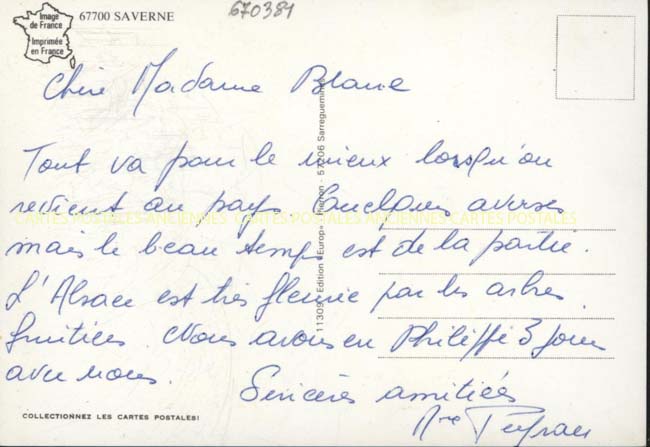 Image
de France
Imprimée
en France
67700 SAVERNE
670381
Chère Madame Blanc
Tout va pour le mieux lorsqu'on
revient au pays. Quelques averses
CARTES POSTALES ANCIENNES CARTES POSTALES ANCIENNES CARTES POSTALES
mais le beau temps est de la partie.
L'Alsace est très fleurie par les arbres
fruitiers. Nous avons eu Philippe 3 jours
avec nous.
Sincères amitiés
Mme
11309 Edition «Europ» Pierron - 57206 Sarreguemines
COLLECTIONNEZ LES CARTES POSTALES!